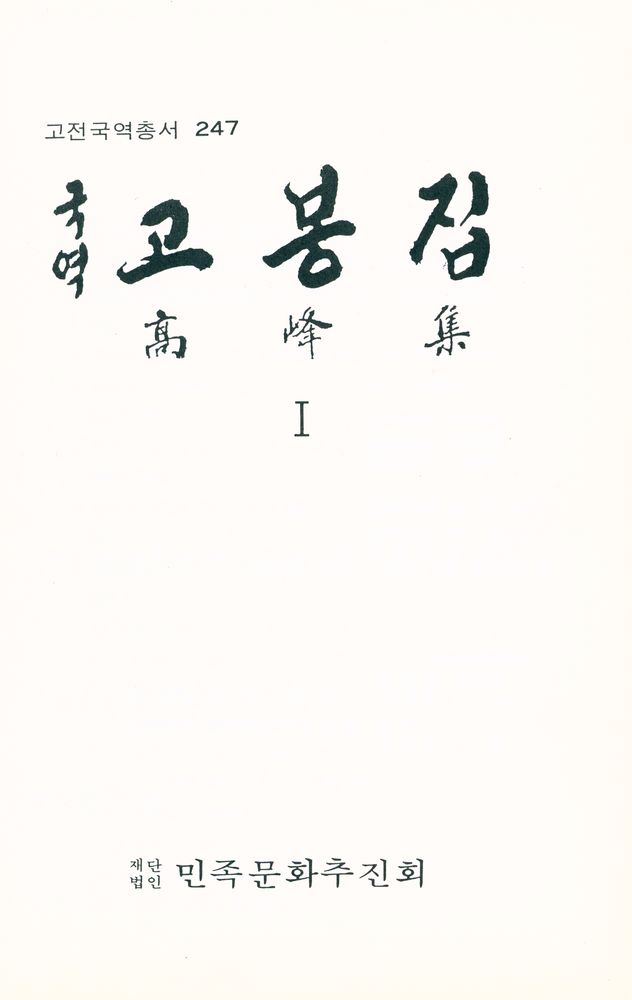 고전국역총서 247
국역 고봉집
高峰集
I
재단법인 민족문화추진회